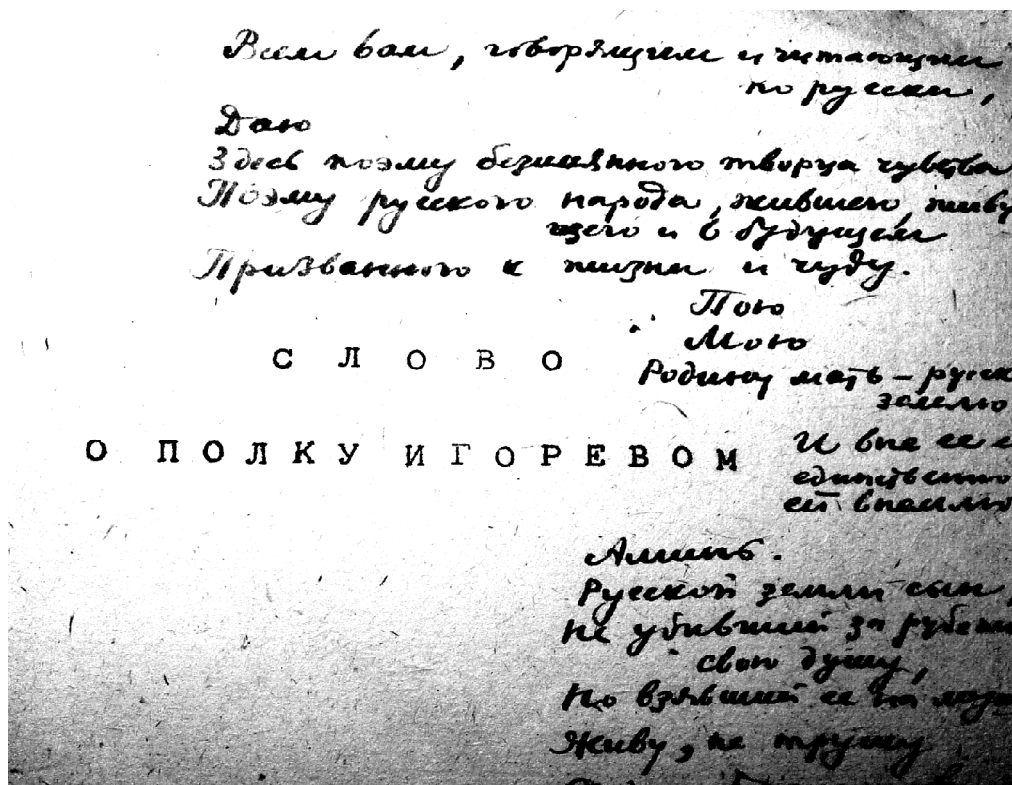 Всем вам, говорящим и читающим
по русски,
Даю
Здесь поэму безимянного творца чувства
Поэму русского народа, жившего, живу
щего и в будущем
Призванного к жизни и чуду.
Пою
Мою
Родину мать – русск
землю
СЛОВО
О ПОЛКУ ИГОРЕВОМ
И вне ее
единственно
ей внемлю
Аминь.
Русской земли сын,
Не убивший за рубежом
свою душу,
Но взявший ее на
Живу, не трушу